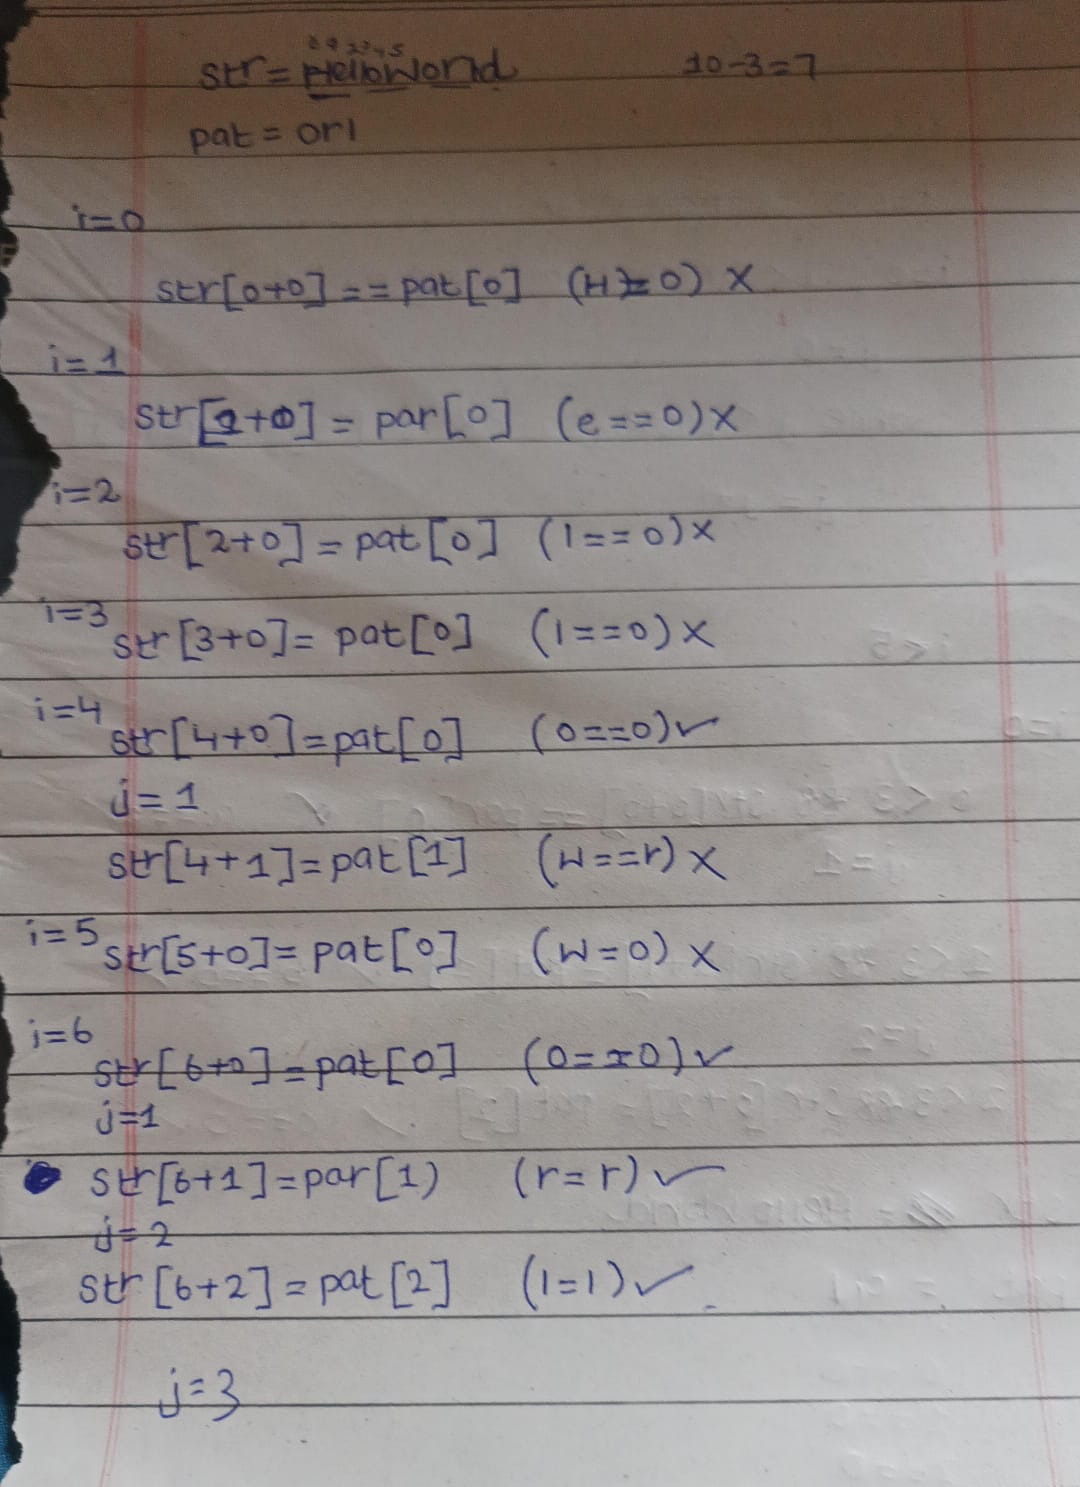 0 1 2 3 4 5
str = HelloWorld 10-3=7
pat = orl
i=0
str[0+0] == pat[0] (H != o) X
i=1
str[1+0] = par[0] (e==o) X
i=2
str[2+0] = pat[0] (l==o) X
i=3
str[3+0] = pat[0] (l==o) X
i=4
str[4+0] = pat[0] (o==o) ✓
j=1
str[4+1] = pat[1] (W==r) X
i=5
str[5+0] = pat[0] (W=o) X
i=6
str[6+0] = pat[0] (o==o) ✓
j=1
str[6+1] = par[1) (r=r) ✓
j=2
str[6+2] = pat[2] (l=l) ✓
j=3